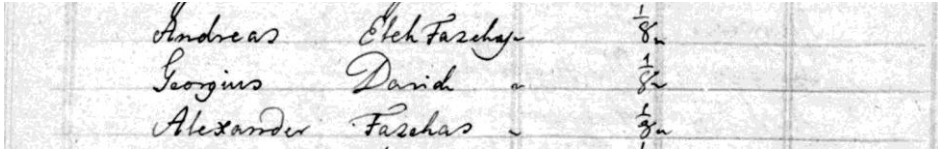 Andreas Eleh Fazekas " 1/8 "
Georgius David " 1/8 "
Alexander Fazekas " 1/8 "